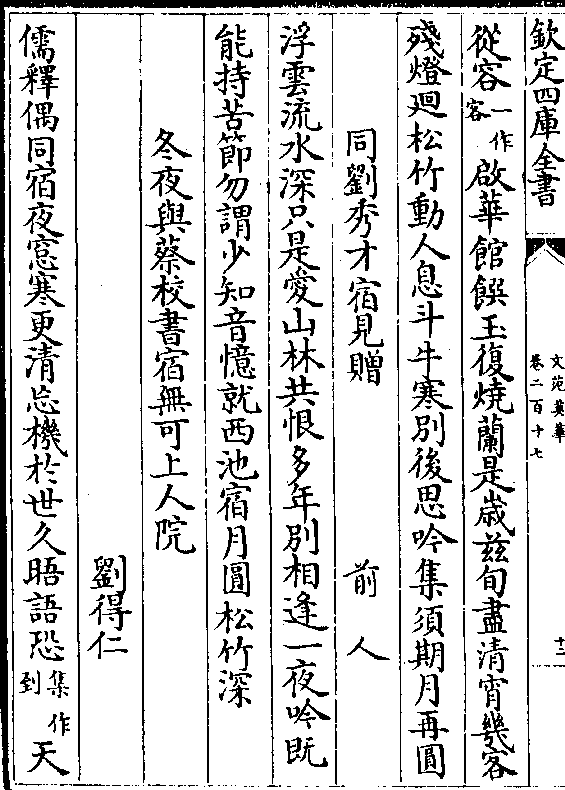 欽定四庫全書
文苑英華
卷二百十七
從容一作客啟華館饌玉復燒蘭是歲茲旬盡清宵幾客
殘燈迴松竹動人息斗牛寒別後思吟集須期月再圓
同劉秀才宿見贈 前人
浮雲流水深只是愛山林共恨多年別相逢一夜吟既
能持苦節勿謂少知音憶就西池宿月圓松竹深
冬夜與蔡校書宿無可上人院
劉得仁
儒釋偶同宿夜窓寒更清忘機於世久晤語恐集作到天